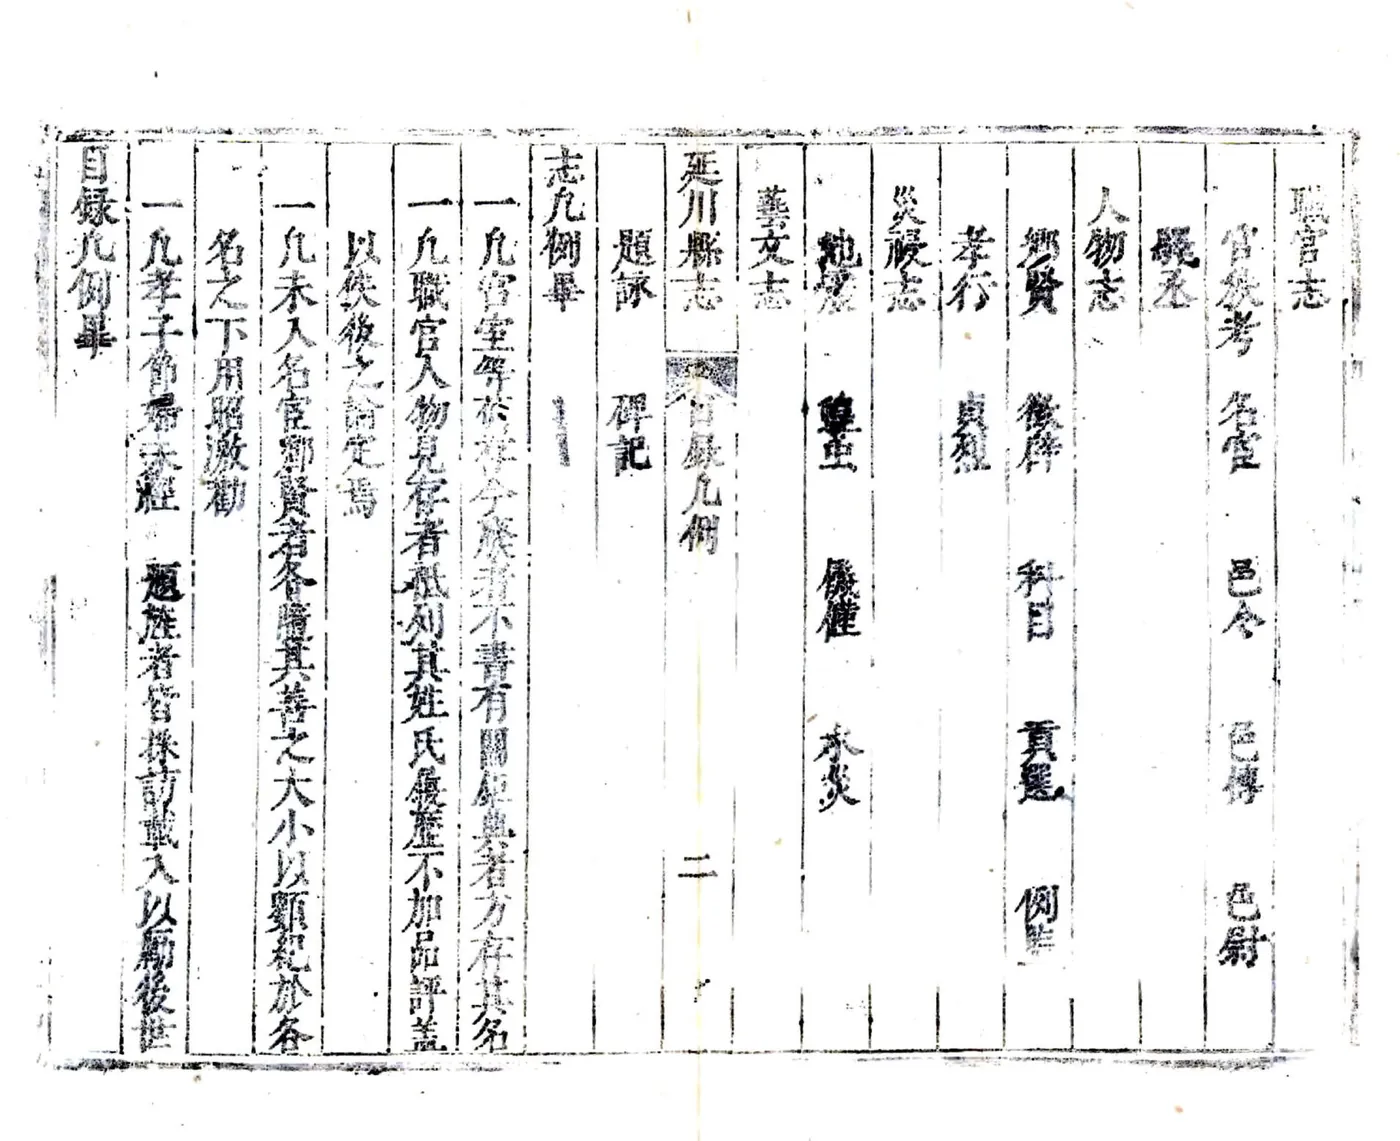 職官志
官秩考　名宦　邑令　邑博　邑尉
驛丞
人物志
鄉賢　徵辟　科目　貢選　例
孝行　貞烈
災祲志
地震　蝗虫　饑饉　水災
藝文志
延川縣志　目録凡例　二
題詠　碑記
志凡例畢
一凡官室等於昔今廢者不書有關典者方存其名
一凡職官人物見存者祗列其姓氏履歷不加品評盖
以俟後之論定焉
一凡未入名宦鄉賢者各隨其善之大小以類紀於各
名之下用昭激勸
一凡孝子節婦未經　題旌者皆採訪載入以勵後世
目録凡例畢